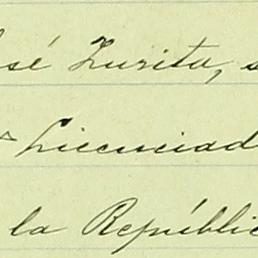 osé Zurita, s
Licenciad
la Repúblic